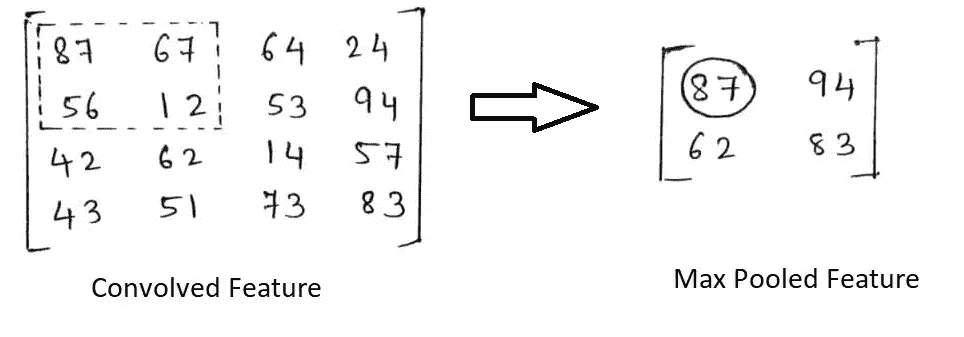 87 67 64 24
56 12 53 94
42 62 14 57
43 51 73 83
Convolved Feature
87 94
62 83
Max Pooled Feature